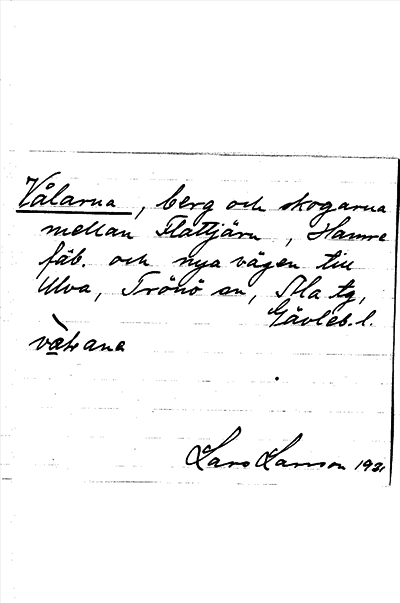 Vålarna, berg och skogarna
mellan Flattjärn, Hamre
fäb. och nya vägen till
Ulva, Trönö sn, Ala tg,
Gävleb. l.
Lars Larsson 1921